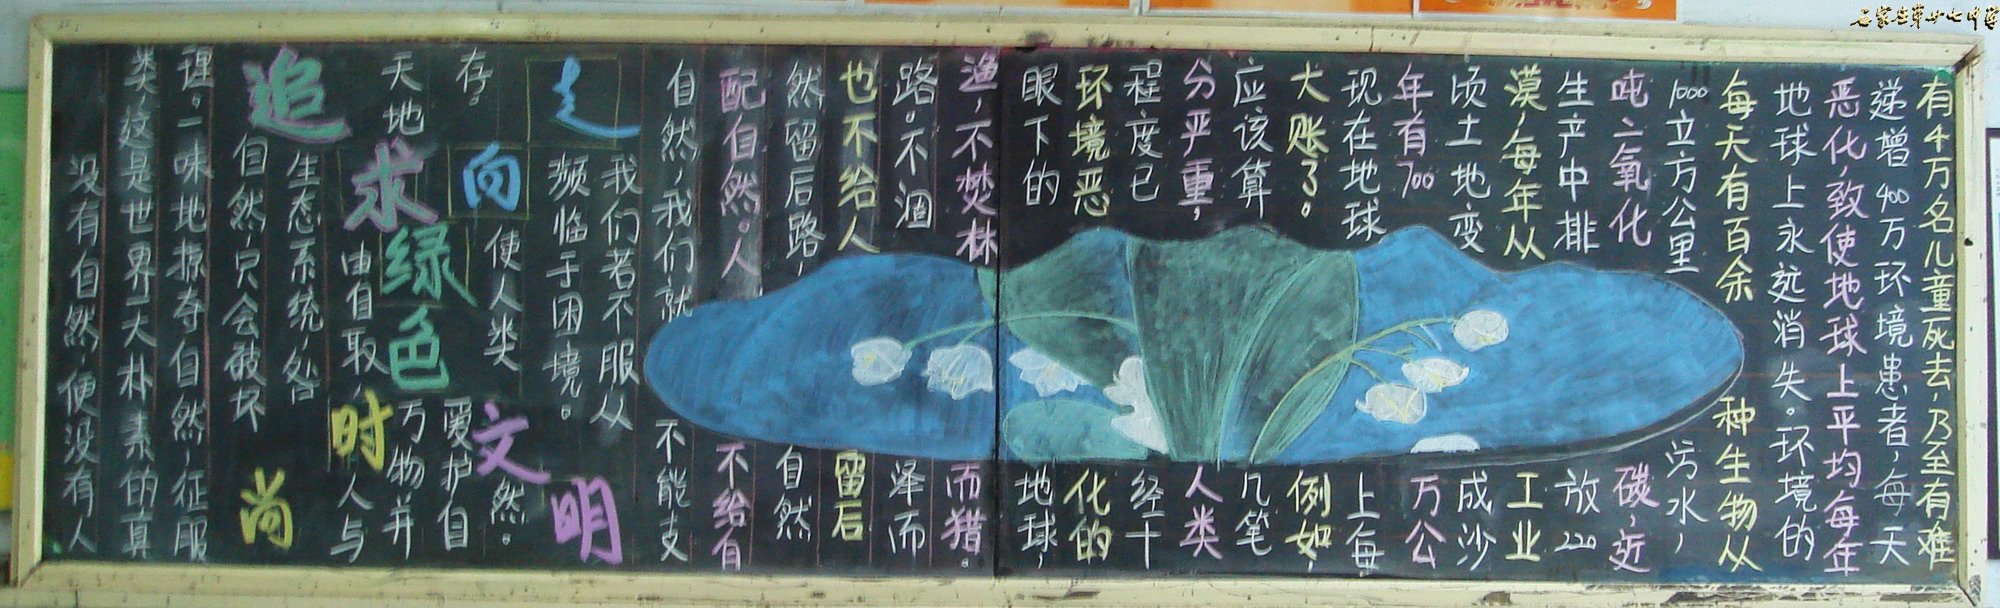 石家庄第廿七中学
追求绿色时尚
走向文明
没有自然，便没有人
类，这是世界一大朴素的真
理。一味地掠夺自然，征服
自然，只会破坏
生态系统，咎
由自取，人与
天地万物并
存。爱护自
使人类然。
濒临于困境。
我们若不服从
自然，我们就不能支
配自然。人不给有
然留后路，自然
也不给人留后
路。不涸泽而
渔，不焚林而猎。
眼下的地球，
环境恶化的
程度已经十
分严重，人类
应该算几笔
大账了。例如，
现在地球上每
年有700万公
顷土地变成沙
漠，每年从工业
生产中排放220
吨二氧化碳，近
1000立方公里污水，
每天有百余种生物从
地球上永远消失。环境的
恶化，致使地球上平均每年
递增400万环境患者，每天
有4万名儿童死去，乃至有难